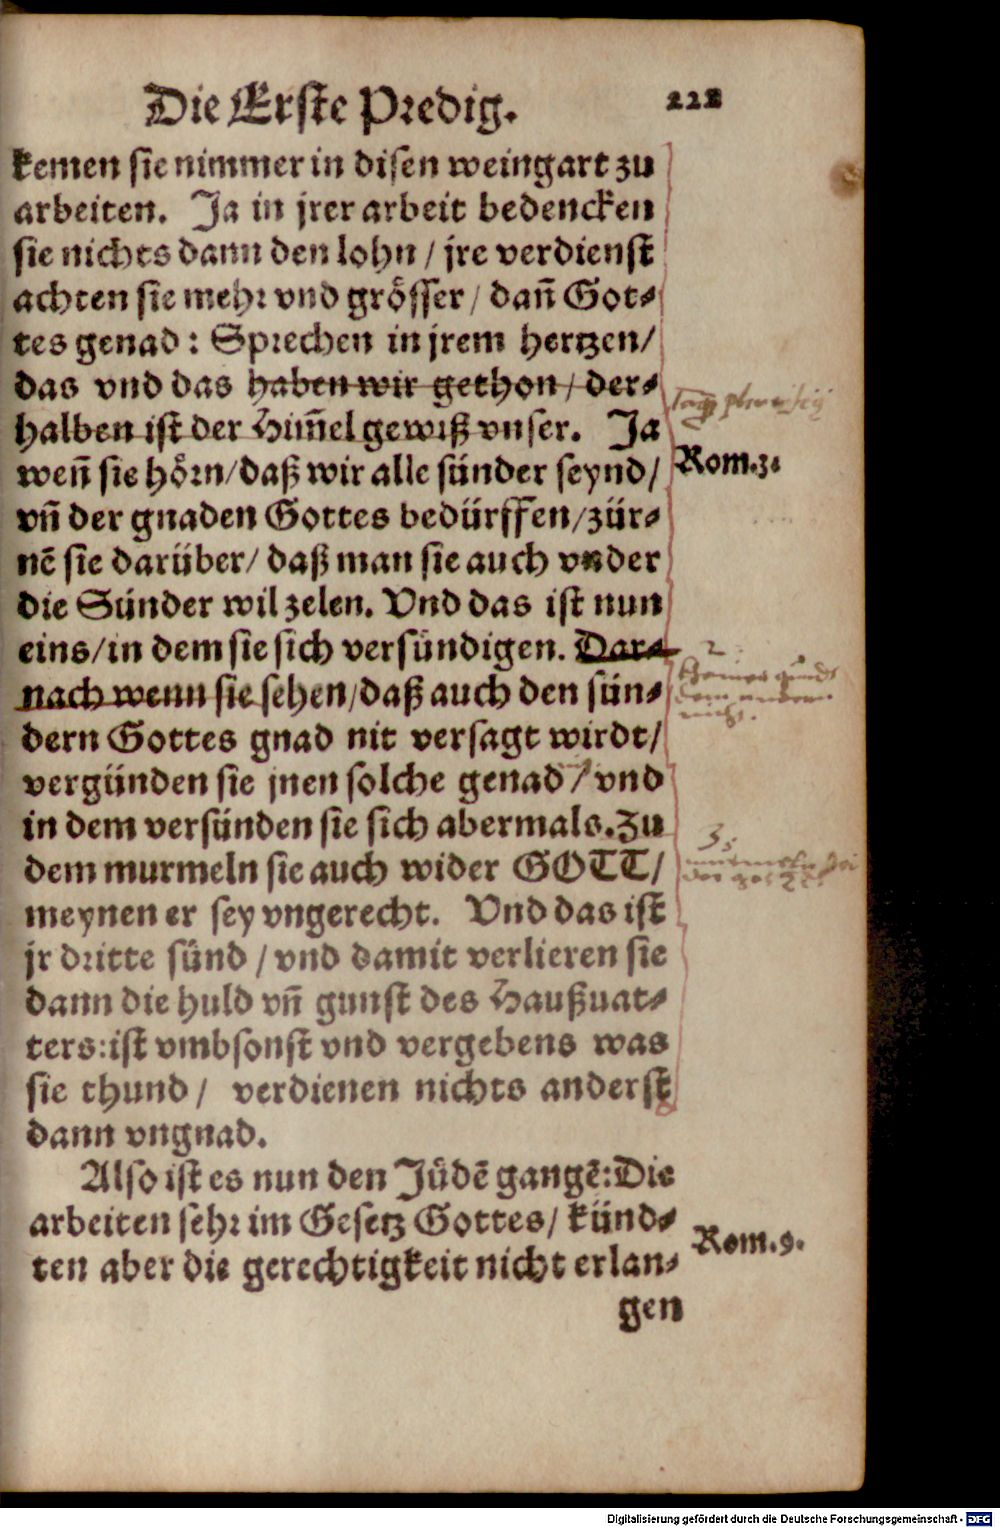 Die Erste Predig. 221
kemen sie nimmer in disen weingart zu
arbeiten. Ja in jrer arbeit bedencken
sie nichts dann den lohn / jre verdienst
achten sie mehr vnd grösser / dañ Got⸗
tes genad : Sprechen in jrem hertzen /
das vnd das haben wir gethon / der⸗
halben ist der Him̃el gewiß vnser. Ja
weñ sie hörn / daß wir alle sünder seynd /
Rom. 3.
vñ der gnaden Gottes bedürffen / zür⸗
nẽ sie darüber / daß man sie auch vnder
die Sünder wil zelen. Vnd das ist nun
eins / in dem sie sich versündigen. Dar⸗
2
nach wenn sie sehen / daß auch den sün⸗
dern Gottes gnad nit versagt wirdt /
vergünden sie jnen solche genad / vnd
in dem versünden sie sich abermals. Zu
3
dem murmeln sie auch wider GOTT /
meynen er sey vngerecht. Vnd das ist
jr dritte sünd / vnd damit verlieren sie
dann die huld vñ gunst des Haußuat⸗
ters: ist vmbsonst vnd vergebens was
sie thund / verdienen nichts anderst
dann vngnad.
Also ist es nun den Jüdẽ gangẽ: Die
arbeiten sehr im Gesetz Gottes / künd⸗
Rom. 9.
ten aber die gerechtigkeit nicht erlan⸗
gen
Digitalisierung gefördert durch die Deutsche Forschungsgemeinschaft - DFG